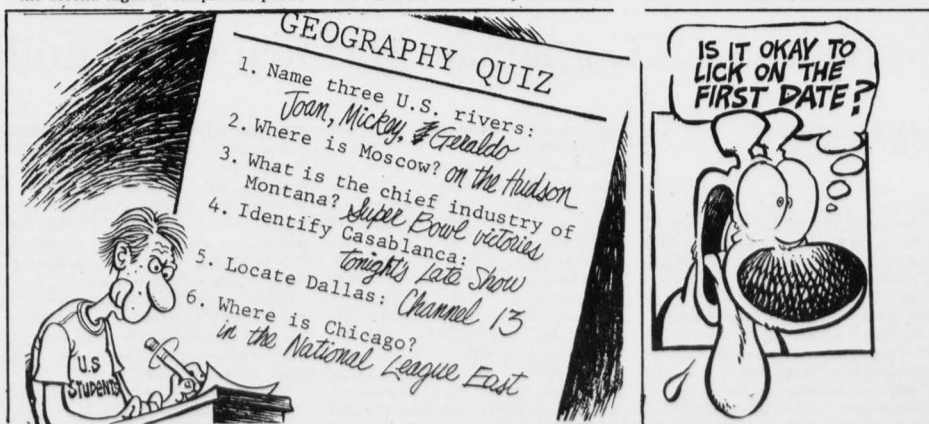 GEOGRAPHY QUIZ
1. Name three U.S. rivers:
Joan, Mickey, & Geraldo
2. Where is Moscow? on the Hudson
3. What is the chief industry of
Montana? Super Bowl victories
4. Identify Casablanca:
tonight's Late Show
5. Locate Dallas: Channel 13
6. Where is Chicago?
in the National League East
U.S
STUDENTS
IS IT OKAY TO
LICK ON THE
FIRST DATE?